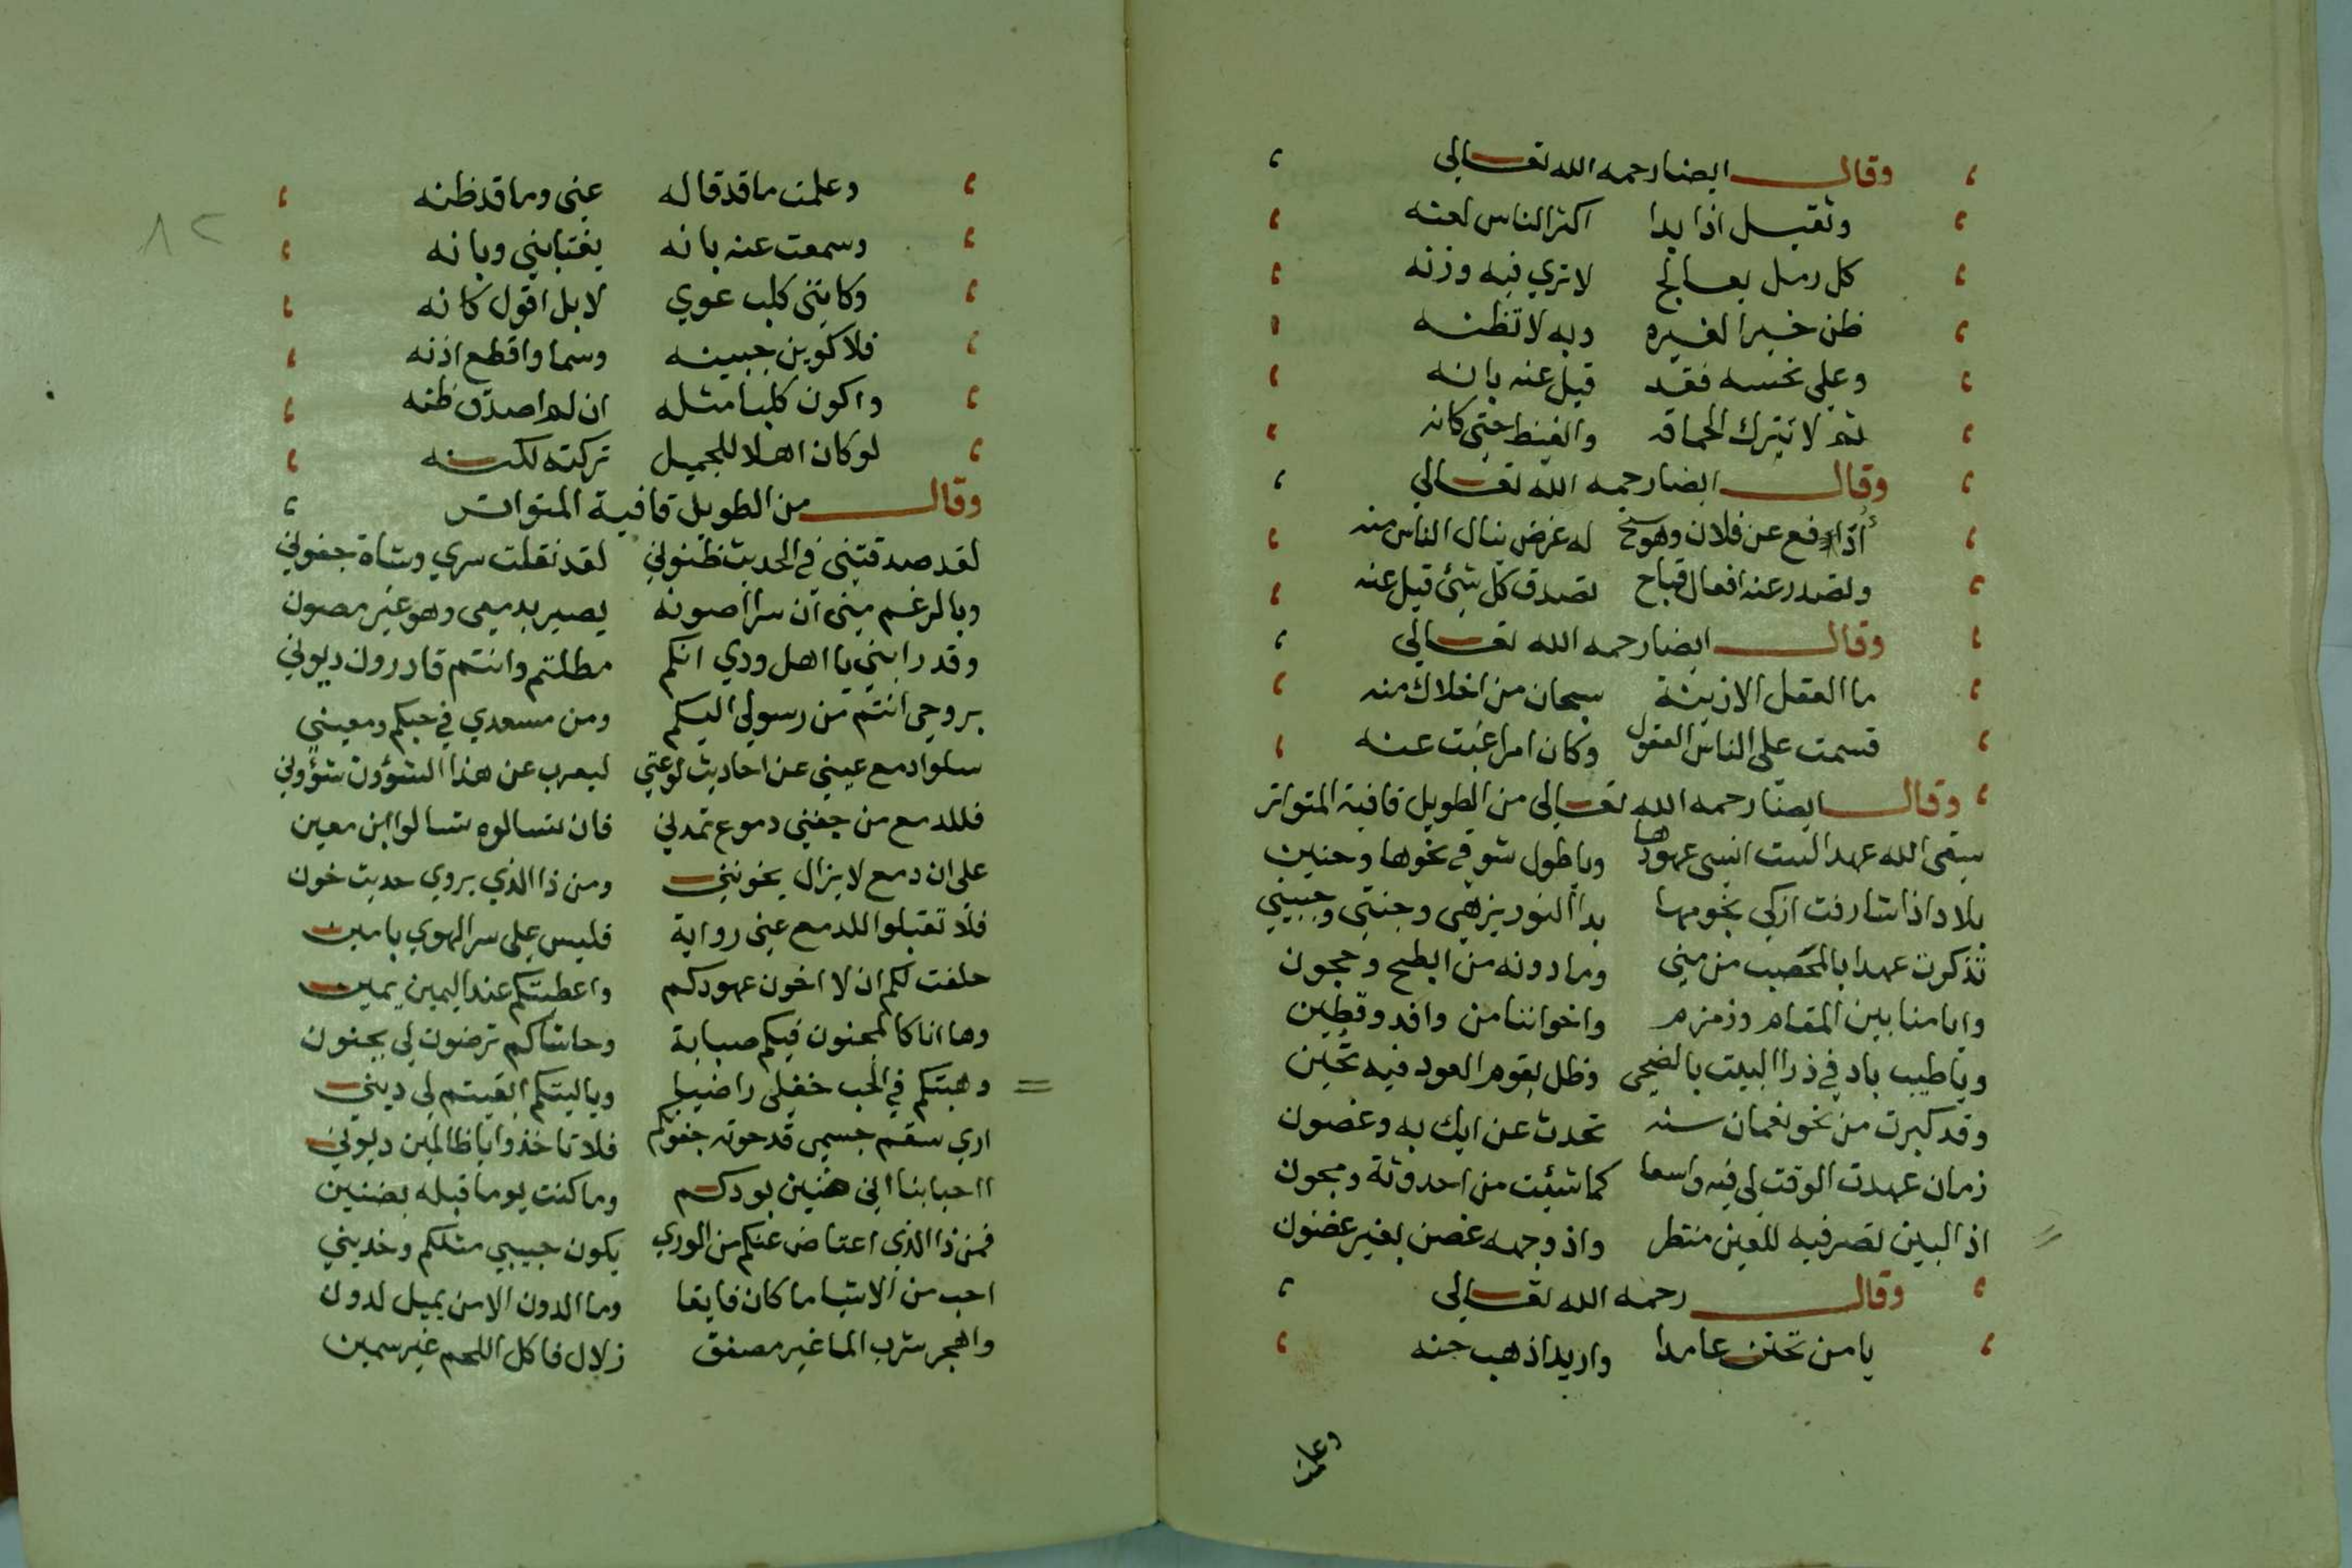 وقال ايضا رحمه الله تعالى
وثقيل اذا بدا اكثر الناس لعنه
كل رمل بعالج لا تري فيه وزنه
ظن خيرا لغيره وبه لا تظنه
وعلي نحسه فقد قيل عنه بانه
ثم لا تترك الحماقه والغيظ حتى كانه
وقال ايضا رحمه الله تعالي
أادافع عن فلان وهو سخ له عرض ينال الناس منه
وتصدر عنه افعال قباح تصدق كل شئ قيل عنه
وقال ايضا رحمه الله تعالي
ما العقل الا زينة سبحان من اخلاك منه
قسمت على الناس العقول وكان امرا غبت عنه
وقال ايضا رحمه الله تعالى من الطويل قافية المتواتر
سقى الله عهدا لست انسى عهودها وياطول شوقي نحوها وحنين
بلاد اذا شارفت ازكى نجومها بدا النور يزهى وجنتى وجبيني
تذكرت عهدا بالمحصب من منى وما دونه من ابطح وحجون
وايامنا بين المقام وزمزم واخواننا من وافد وقطين
وياطيب باد في ذرا البيت بالضحى وظل يقوم العود فيه بحين
وقد كبرت من نحو نعمان سنه تحدث عن ايك به وغصون
زمان عهدت الوقت لي فيه واسعا كما شئت من احدوثة ومجون
اذ البين نضر فيه للعين منظر واذ وجهه غصن بغير غضون
وقال رحمه الله تعالى
يا من تجنن عامدا واريد اذهب جنه
وعلمت
٨٢
وعلمت ما قد قاله عنى وما قد ظنه
وسمعت عنه بانه يغتابني وبانه
وكانني كلب عوي لا بل اقول كانه
فلاكوين جبينه وسما واقطع اذنه
واكون كلبا مثله ان لم اصدق ظنه
لو كان اهلا للجميل تركته لكنه
وقال من الطويل قافية المتواتر
لقد صدقتنى في الحديث ظنوني لقد نقلت سري وشاة جفوني
وبالرغم مني ان سرا اصونه يصير بدمعى وهو غير مصون
وقد رابني يا اهل ودي انكم مطلتم وانتم قادرون ديوني
بروحى انتم من رسولي اليكم ومن مسعدي في حبكم ومعيني
سلوا دمع عيني عن احاديث لوعتي ليعرب عن هذا الشؤون شؤوني
فللدمع من جفني دموع تمدني فان تسالوه تسالوا ابن معين
على ان دمع لا يزال يخونني ومن ذا الذي يروي حديث خون
فلا تقبلوا للدمع عني رواية فليس على سر الهوي بامين
حلفت لكم ان لا اخون عهودكم واعطيتكم عند اليمين يمين
وها انا كالمجنون فيكم صبابة وحاشاكم ترضون لي بجنون
وهبتكم في الحب عقلى راضيا وياليتكم ابقيتم لي ديني
اري سقم جسمى قد حوته جفونكم فلا تاخذوا يا ظالمين ديوني
ااحبابنا اني ضنين بودكم وما كنت يوما قبله بضنين
فمن ذا الذي اعتاض عنكم من الوري يكون حبيبي مثلكم وخديني
احب من الاشيا ما كان فايقا وما الدون الا من يميل لدون
واهجر شرب الما غير مصفق زلال فاكل اللحم غير سمين